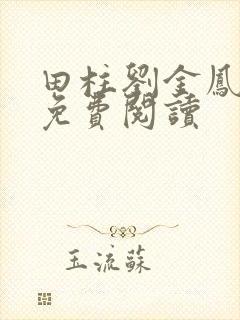 田柱劉金鳳
免費閱讀
玉流蘇